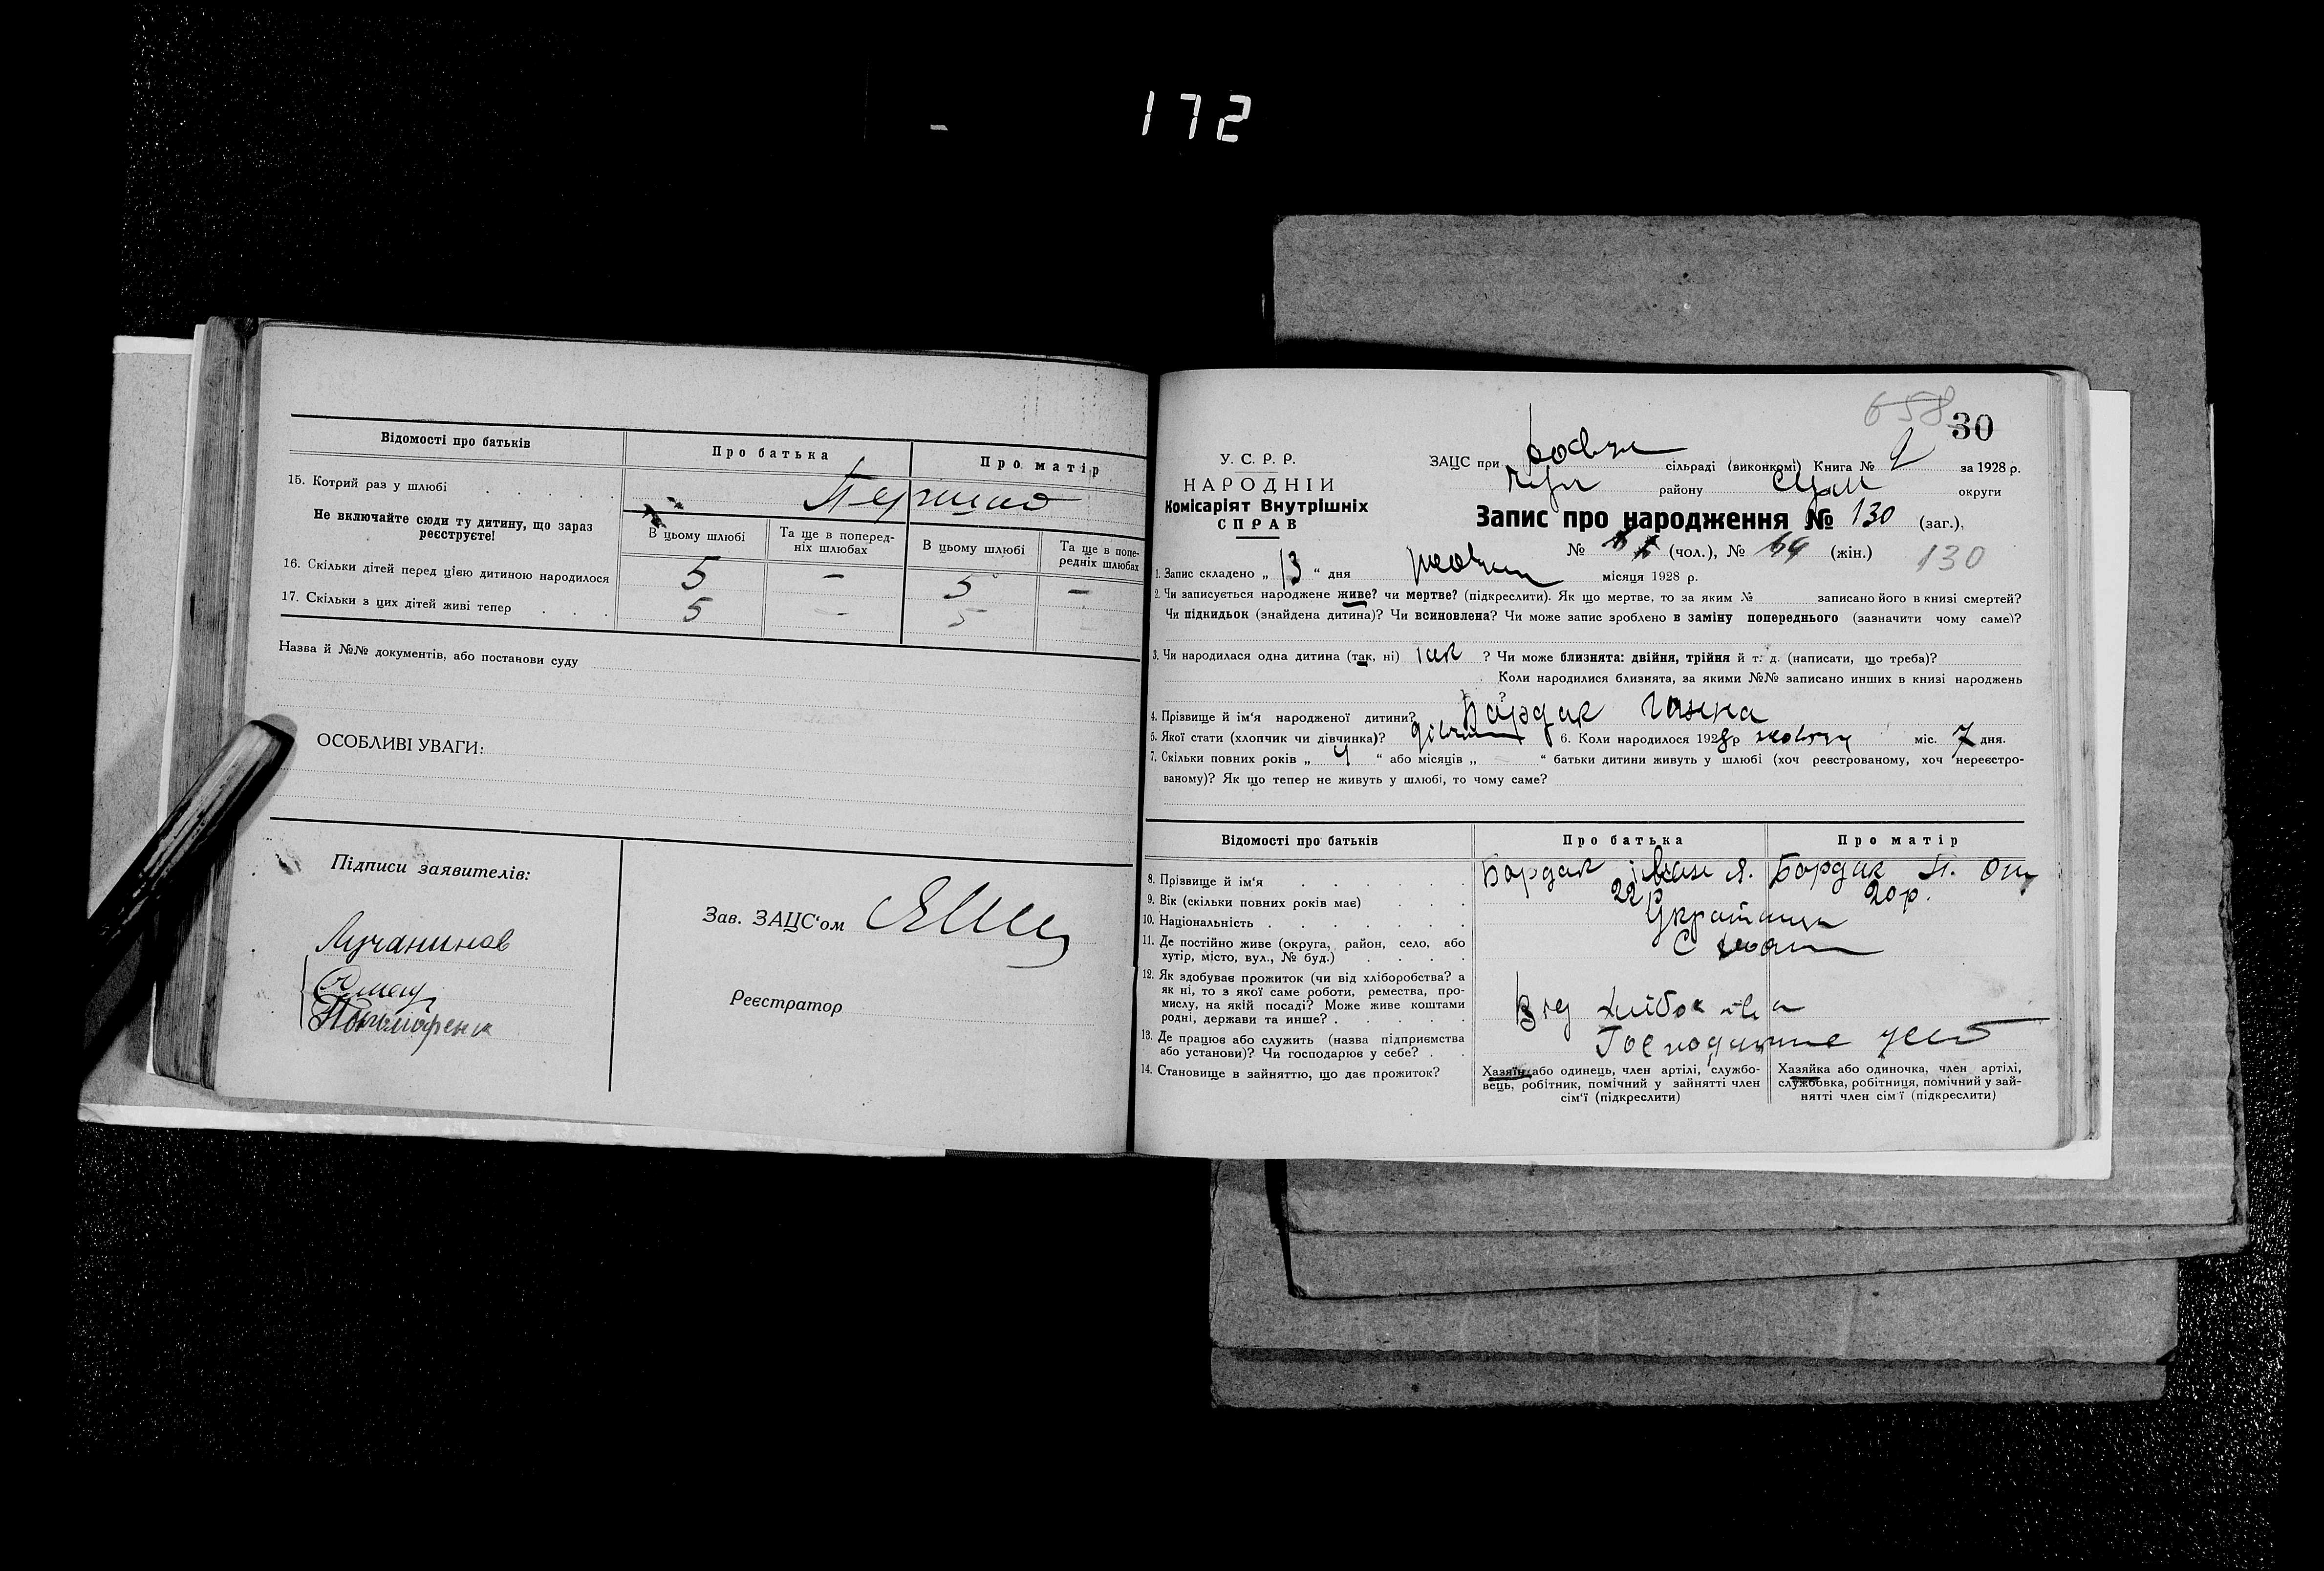 172
Відомості про батьків
Про батька
Про матір
15. Котрий раз у шлюбі
Не включайте сюди ту дитину, що зараз реєструєте!
В цьому шлюбі
Та ще в поперед-
ніх шлюбах
В цьому шлюбі
Та ще в попе-
редніх шлюбах
16. Скільки дітей перед цією дитиною народилося 5 – 5 –
17. Скільки з цих дітей живі тепер 5 – 5
Назва й №№ документів, або постанови суду
ОСОБЛИВІ УВАГИ:
Підписи заявителів:
Лучанинов
Пономаренк
Зав. ЗАЦС'ом
Реєстратор
658
30
У. С. Р. Р.
НАРОДНІЙ
Комісаріят Внутрішніх
СПРАВ
ЗАЦС при сільраді (виконкомі) Книга № за 1928 р.
району Сум округи
Запис про народження № 130 (заг.),
№ (чол.), № 64 (жін.) 130
1. Запис складено „ 13 “ дня місяця 1928 р.
2. Чи записується народжене живе? чи мертве? (підкреслити). Як що мертве, то за яким № записано його в книзі смертей?
Чи підкидьок (знайдена дитина)? Чи всиновлена? Чи може запис зроблено в заміну попереднього (зазначити чому саме)?
3. Чи народилася одна дитина (так, ні) так ? Чи може близнята: двійня, трійня й т. д. (написати, що треба)?
Коли народилися близнята, за якими №№ записано инших в книзі народжень
4. Прізвище й ім'я народженої дитини? Бордак Ганна
5. Якої стати (хлопчик чи дівчинка)? дівчин 6. Коли народилося 1928 р міс. 7 дня.
7. Скільки повних років „ 4 “ або місяців „ – “ батьки дитини живуть у шлюбі (хоч реєстрованому, хоч нереєстро-
ваному)? Як що тепер не живуть у шлюбі, то чому саме?
Відомості про батьків
Про батька
Про матір
8. Прізвище й ім'я Бордак Іван Я. Бордак
9. Вік (скільки повних років має) 22 р 20 р.
10. Національність
11. Де постійно живе (округа, район, село, або
хутір, місто, вул., № буд.)
12. Як здобуває прожиток (чи від хліборобства? а
як ні, то з якої саме роботи, ремества, про-
мислу, на якій посаді? Може живе коштами
родні, держави та инше?
Від
13. Де працює або служить (назва підприємства
або установи)? Чи господарює у себе?
14. Становище в зайняттю, що дає прожиток?
Хазяїн або одинець, член артілі, службо-
вець, робітник, помічний у зайнятті член
сім'ї (підкреслити)
Хазяйка або одиночка, член артілі,
службовка, робітниця, помічний у зай-
нятті член сім'ї (підкреслити)